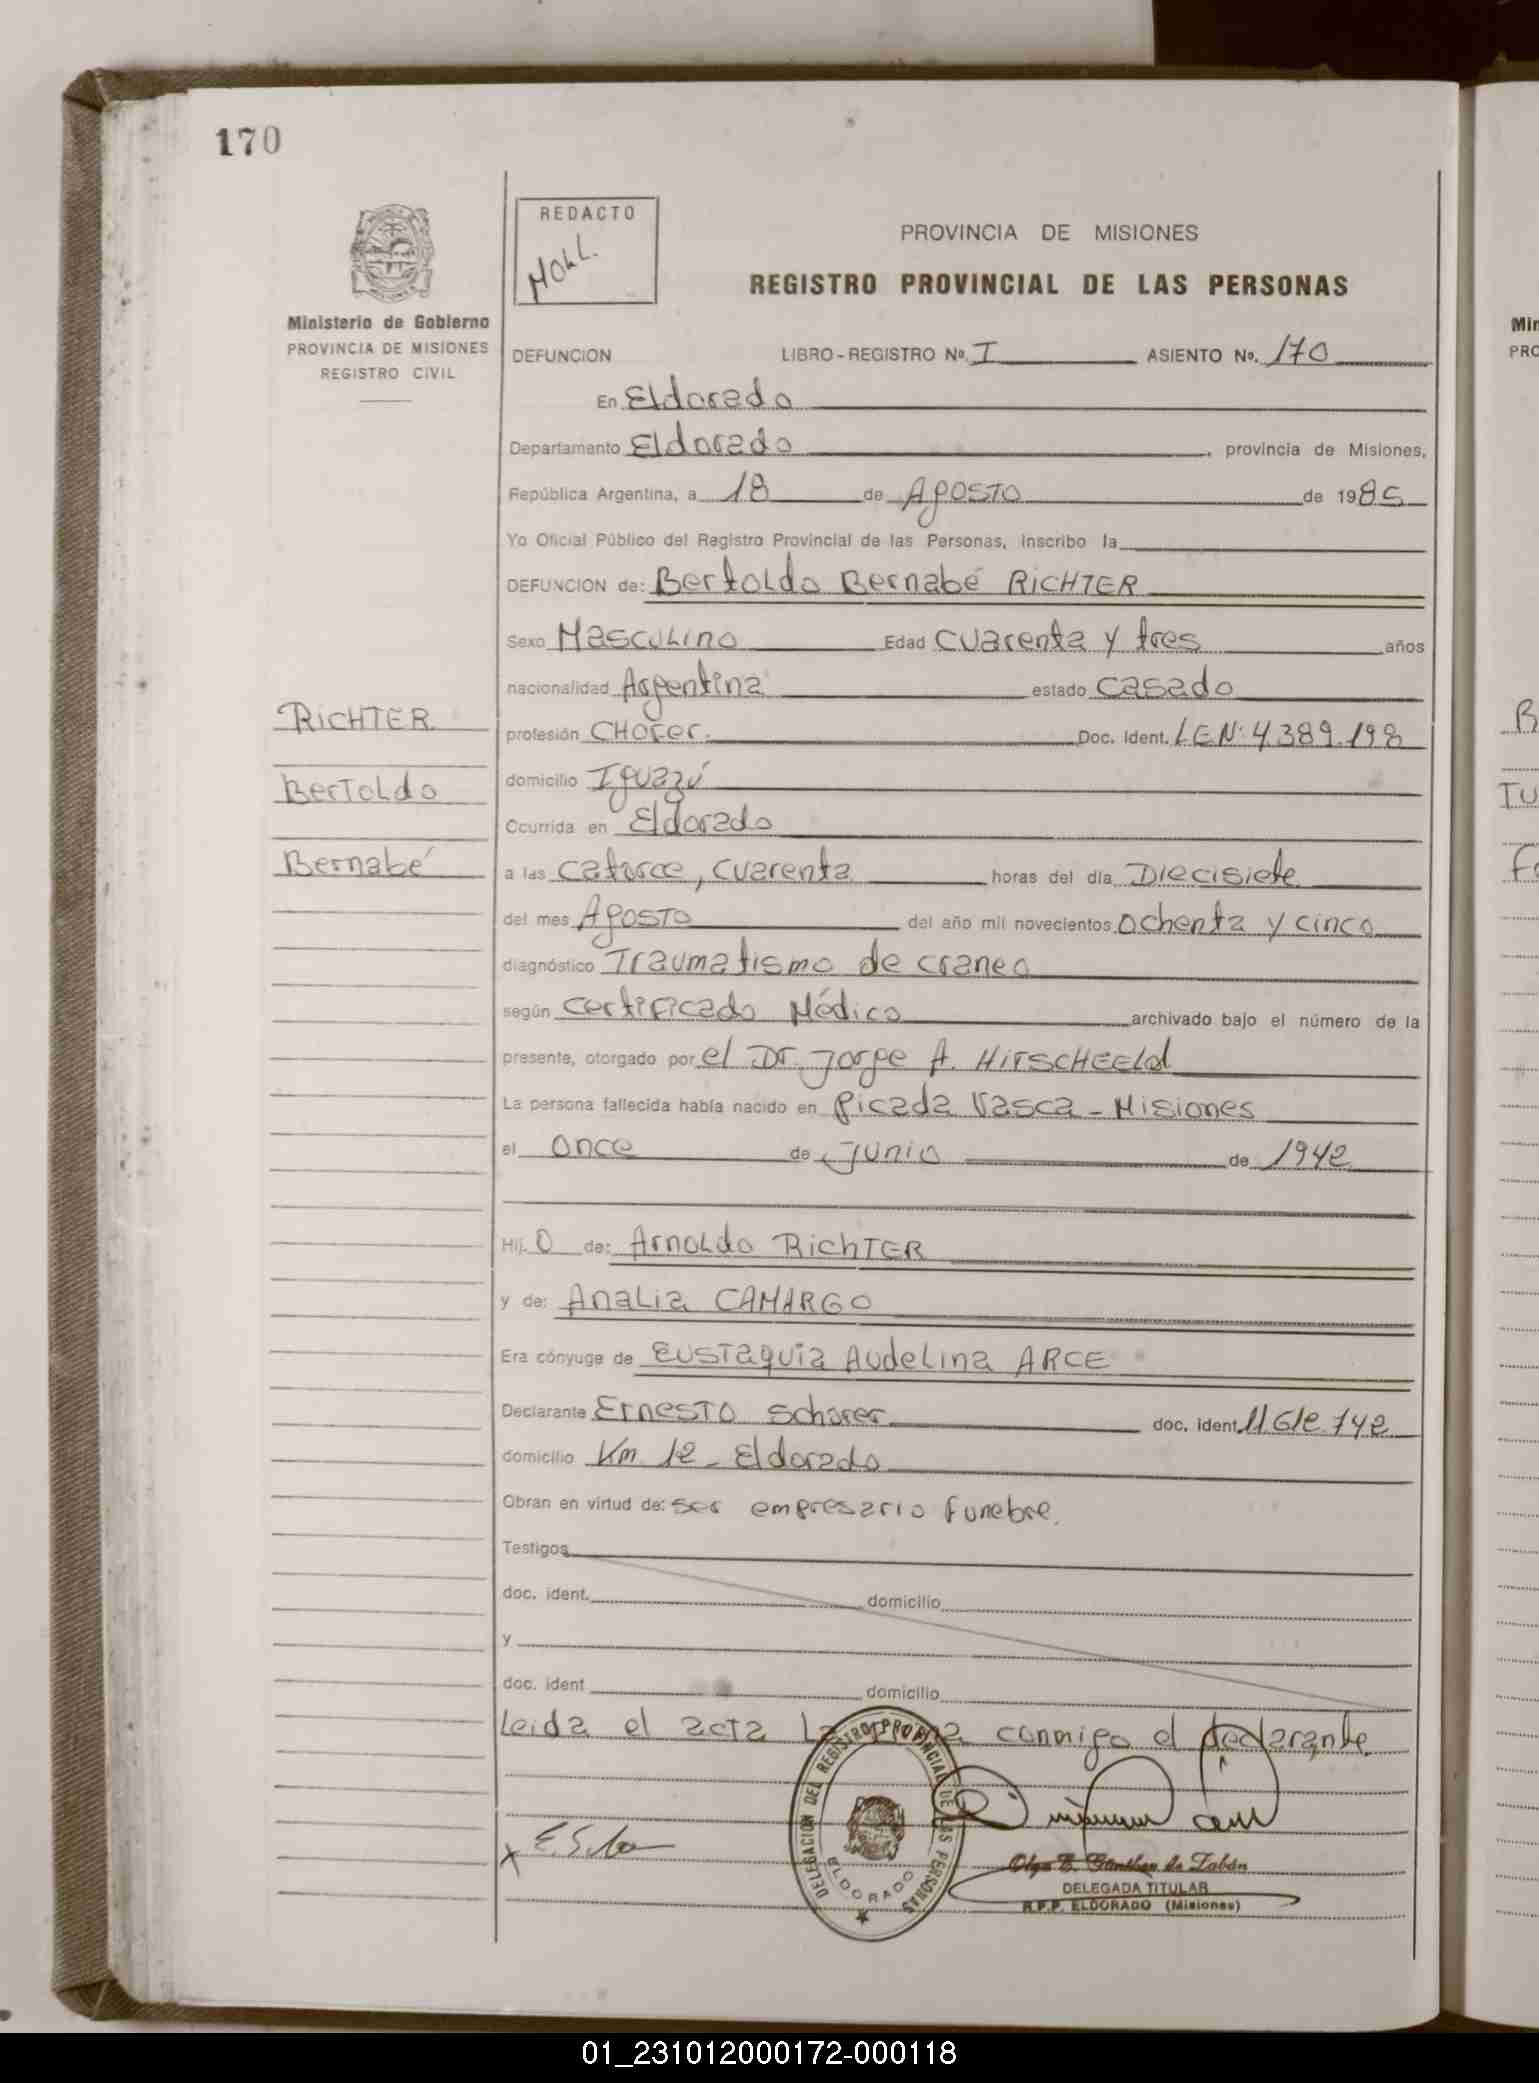 170
REDACTO
MOLL.
PROVINCIA DE MISIONES
REGISTRO PROVINCIAL DE LAS PERSONAS
Ministerio de Gobierno
PROVINCIA DE MISIONES
REGISTRO CIVIL
DEFUNCION LIBRO-REGISTRO Nº. I ASIENTO Nº. 170
En Eldorado
Departamento Eldorado, provincia de Misiones,
República Argentina, a 18 de Agosto de 1985
Yo Oficial Público del Registro Provincial de las Personas, inscribo la
DEFUNCION de: Bertoldo Bernabé RICHTER
Sexo Masculino Edad cuarenta y tres años
nacionalidad Argentina estado casado
RICHTER
profesión CHOFER. Doc. Ident. LEN: 4.389.198
Bertoldo
domicilio Iguazú
Ocurrida en Eldorado
Bernabé
a las catorce, cuarenta horas del día Diecisiete
del mes Agosto del año mil novecientos ochenta y cinco
diagnóstico Traumatismo de craneo
según certificado Médico archivado bajo el número de la
presente, otorgado por el Dr. Jorge A.
La persona fallecida había nacido en Picada Vasca - Misiones
el once de Junio de 1942
Hij o de: Arnoldo RICHTER
y de: Analia CAMARGO
Era cónyuge de Eustaquia Audelina ARCE
Declarante Ernesto Schorer doc. ident. 11.612.742
domicilio Km. 12 - Eldorado
Obran en virtud de: ser empresario funebre.
Testigos
doc. ident. domicilio
y
doc. ident domicilio
Leida el acta la conmigo el declarante
DELEGACION DEL REGISTRO PROVINCIAL DE LAS PERSONAS
ELDORADO
DELEGADA TITULAR
R.P.P. ELDORADO (Misiones)
01_231012000172-000118